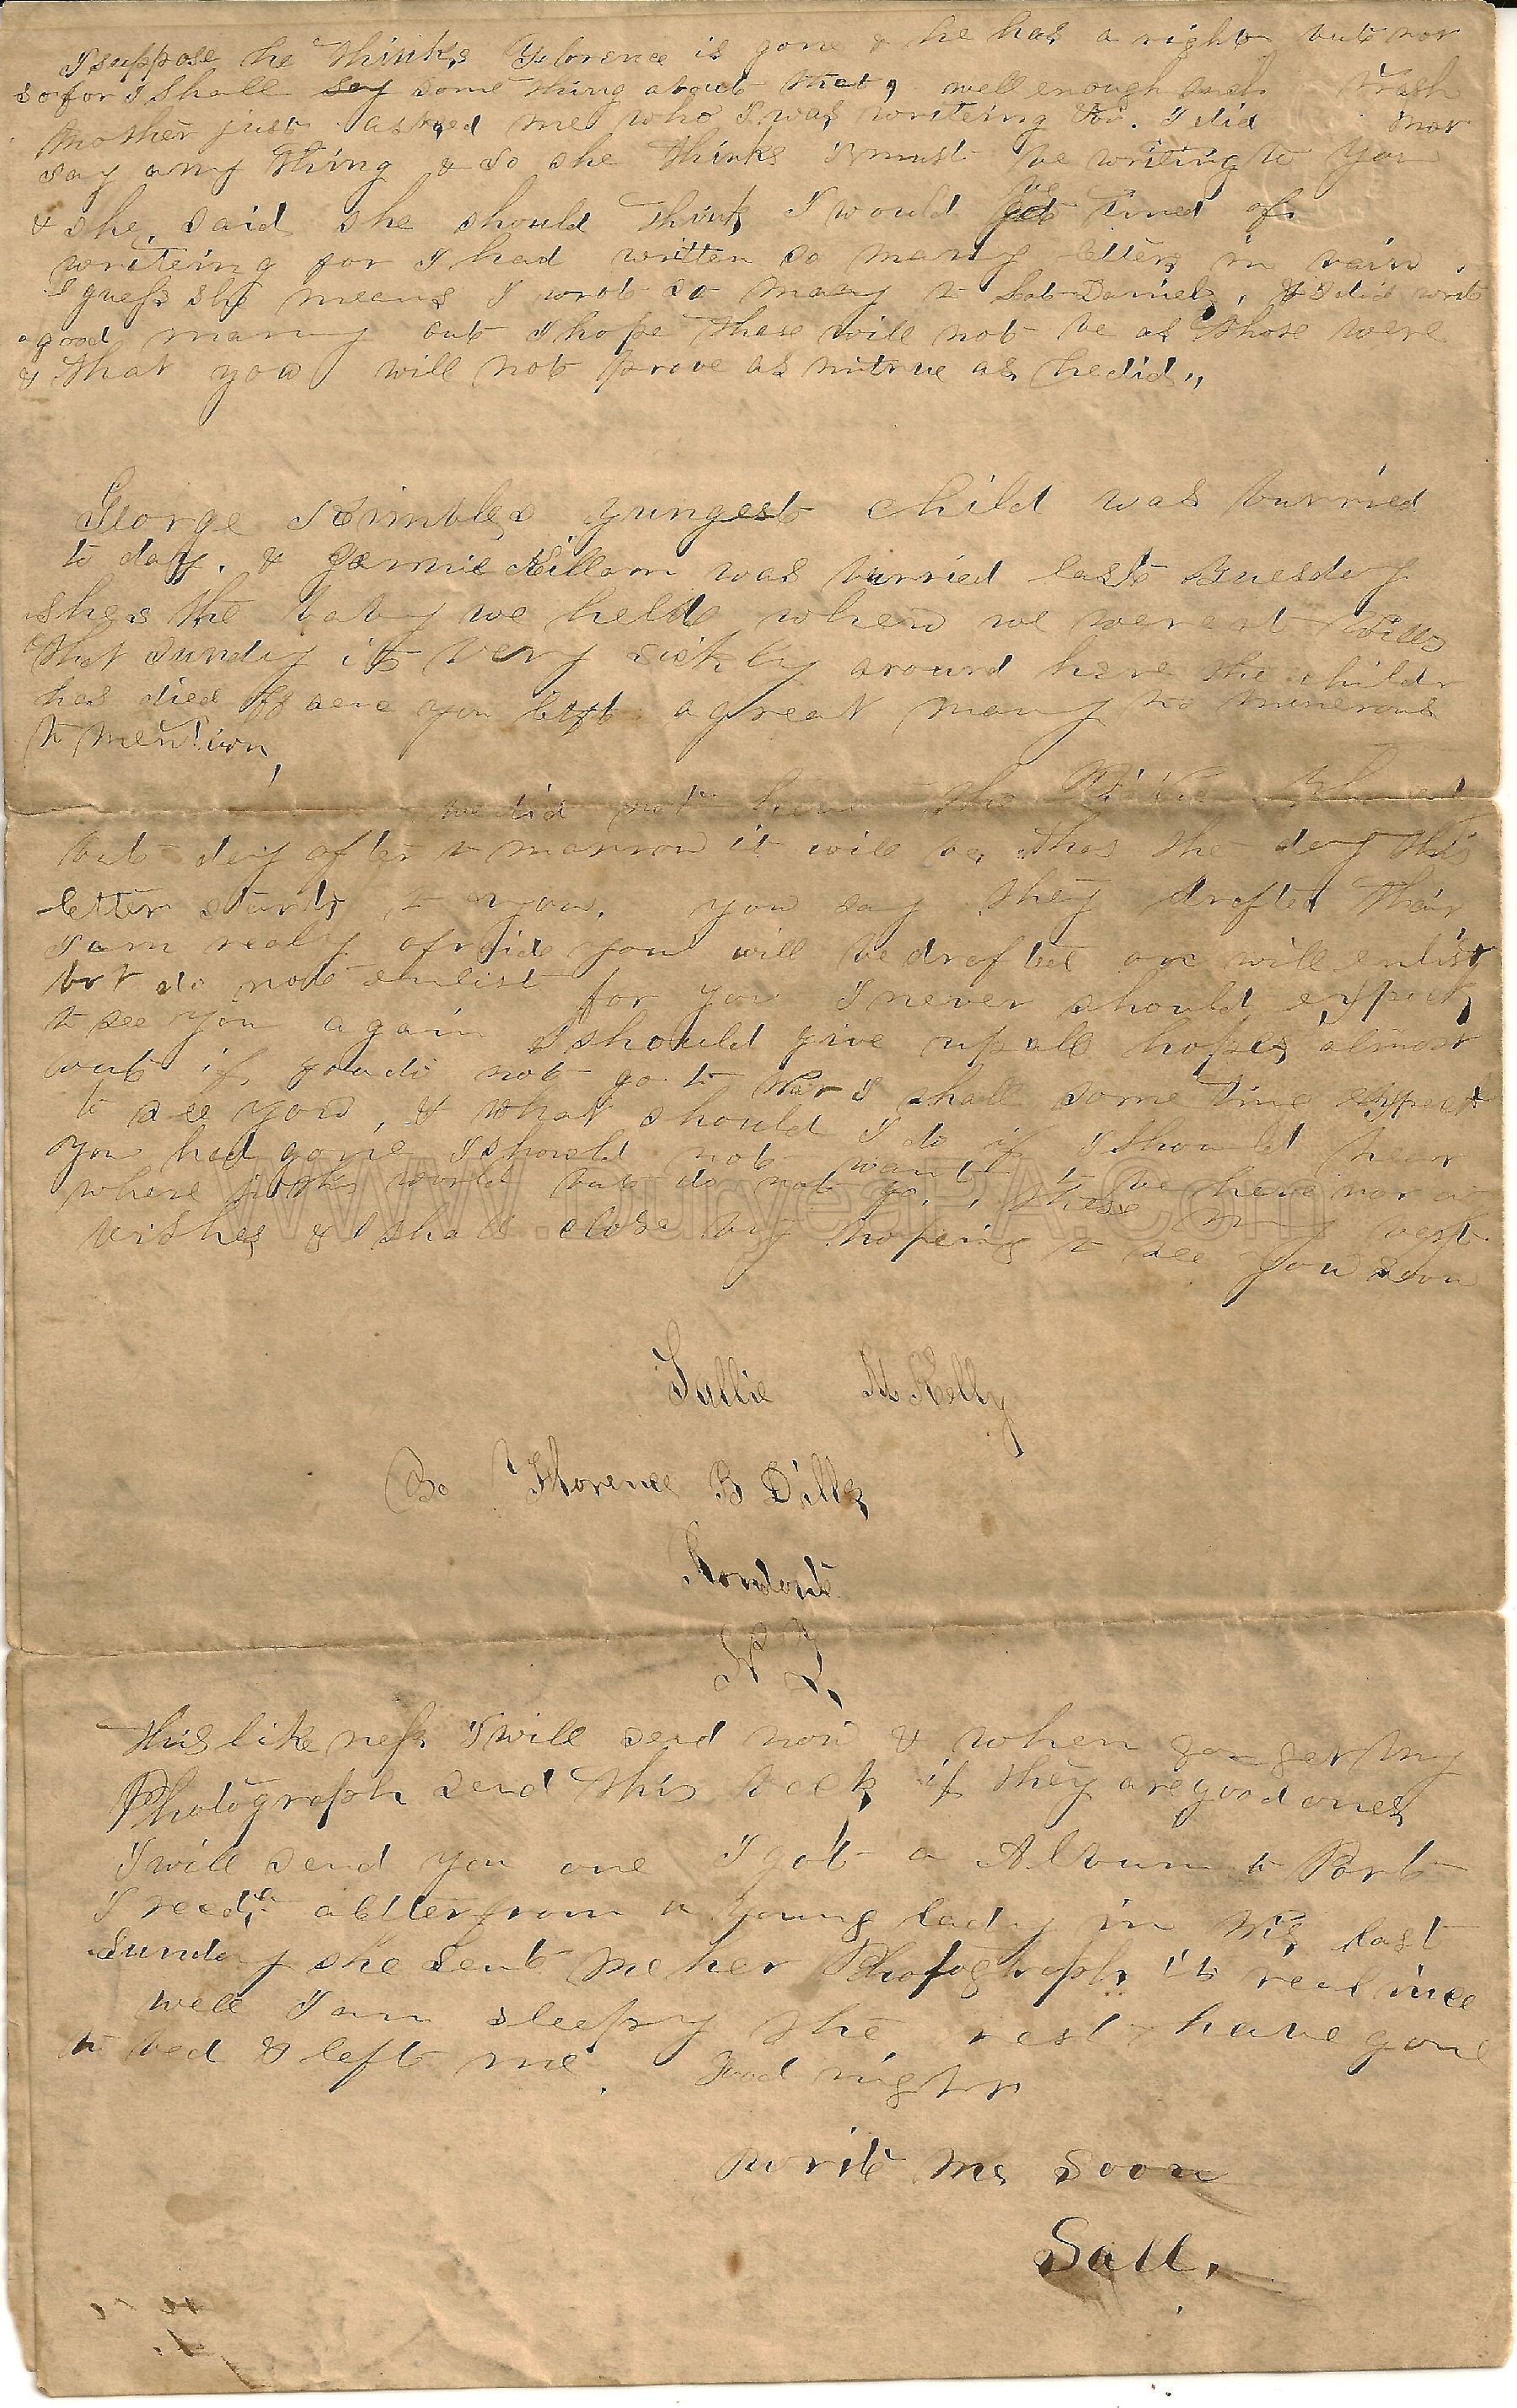 I suppose he thinks Florence is gone & he has a right but not
so for I shall say some thing about that, well enough such trash
Mother just asked me who I was writeing to. I did not
say any thing & so she thinks I must be writing to you
& she said she should think I would get tired of
writeing for I had written so many letters in vain.
I guess she means I wrote so many to Daniels, & I did write
a good many but I hope these will not be as those were
& that you will not prove as untrue as he did,,
George Kimbles yungest child was burried
to day. & Jennie Killam was burried last Tuesday
shes the baby we held when we were at Dills
that Sunday its very sickly around here the childr
has died off since you left a great many too numerous
to mention,
we did not have the
but day after to morrow it will be thes the day this
letter starts to you. you say they drafted thair
I am realy afraide you will be drafted or will enlist
but do note enlist for you I never should expect
to see you again I should give up all hopes almost
but if you do not go to War I shall some time expect
to see you, & what should I do if I should hear
you had gone I should not want to be here nor any
where in this world but do not go, these my best
wishes & I shall close by hopeing to see you soon
Sallie M Kelly
Florence B Dills
N Y.
This likeness I will send now & when you get my
Photograph send this back if they are good ones
I will send you one I got a Album to Port
I recd, a letter from a young lady in last
Sunday she sent me her Photograph its real nice
well I am sleepy the rest have gone
to bed & left me. Good night
write me soon
Sall.
www.DuryeaPA.com